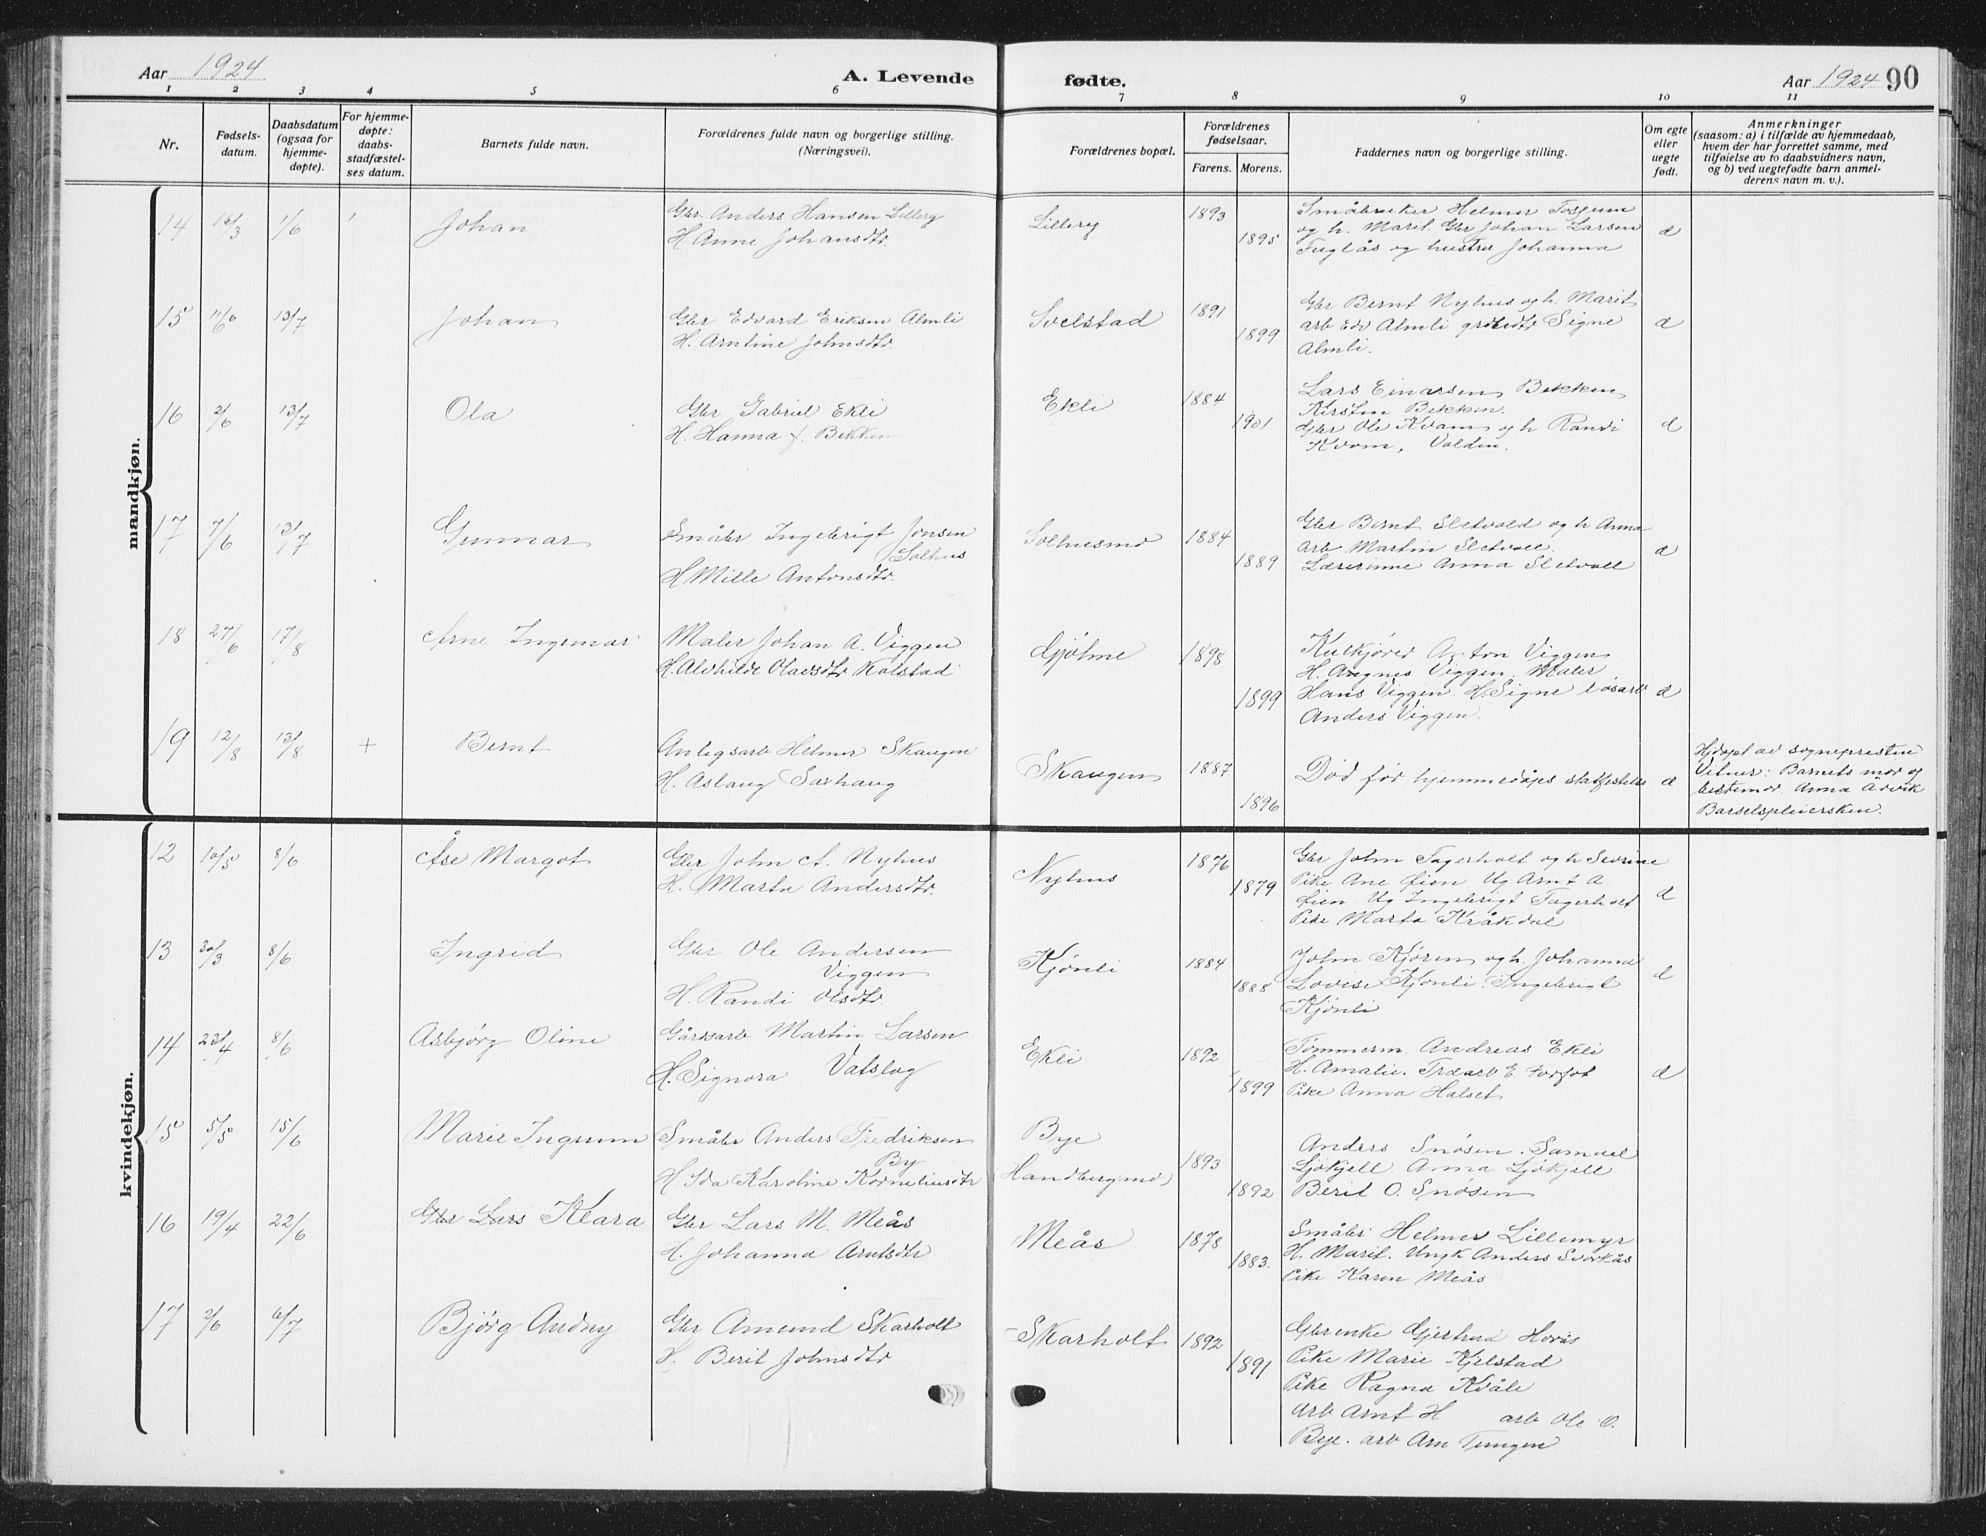 Aar 1924
A. Levende fødte.
Aar 1924 90
1 2 3 4 5 6 7 8 9 10 11
Nr.
Fødsels-
datum.
Daabsdatum
(ogsaa for
hjemme-
døpte).
For hjemme-
døpte:
daabs-
stadfæstel-
ses datum.
Barnets fulde navn.
Forældrenes fulde navn og borgerlige stilling.
(Næringsvei).
Forældrenes bopæl.
Forældrenes
fødselsaar.
Farens. Morens.
Faddernes navn og borgerlige stilling.
Om egte
eller
uegte
født.
Anmerkninger
(saasom: a) i tilfælde av hjemmedaab,
hvem der har forrettet samme, med
tilføielse av to daabsvidners navn,
og b) ved uegtefødte barn anmel-
derens navn m. v.).
mandkjøn.
14 1/6 Johan
Gbr. Anders Hansen Lillery
H Anne Johansdtr.
Lillery 1893 1895
Småbruker Helmer
og h. Marit. Gbr Johan Larsen
Fuglås og hustru Johanna
15 11/6 13/7 Johan
Gbr Edvard Eriksen Almli
H. Arntine Johnsdtr.
Svelstad 1891 1899
Gbr Bernt Nyhus og h. Marit
arb Edv Almli Signe
Almli.
16 2/6 13/7 Ola
Gbr Gabriel Ekli
H. Hanna f. Bekken
Ekli 1884 1901
Lars Einarsen Bekken
Kirsten Bekken.
Gbr Ole Kvam og h Randi
Kvam, Volden.
17 7/6 13/7 Gunnar
Småbr Ingebrigt Jonsen
Solhus
H Mille Antonsdtr.
Solhusmo 1884 1889
Gbr Bernt Sletvold og h Anna
arb Martin Sletvold.
Lærerinne Anna Sletvold
18 27/6 17/8 Arne Ingemar
Maler Johan A. Viggen
H. Alvhilde Olavsdtr Kolstad
Gjølme 1898 1899
Kulkjører Anton Viggen
H. Angnes Viggen. Maler
Hans Viggen H. Signe løsarb
Anders Viggen.
19 12/8 13/8 + Bernt
Anlegsarb Helmer Skaugen
H. Aslaug Sarhaug
Skaugen 1887 1896
Død før hjemmedåps statfestelse
Hjdøpt av sognepresten
Vitner: Barnets mor og
bestemor. Anna Arvik
Barselspleiersken.
kvindekjøn.
12 10/5 8/6 Åse Margot
Gbr John A. Nyhus
H. Marta Andersdtr.
Nyhus 1876 1879
Gbr John Fagerholt og h Sevrine
Pike Ane Øien Ug Arnt A
Øien. Ug Ingebrigt Fagerholt
Pike Marta Kråkdal
13 30/3 8/6 Ingrid
Gbr Ole Andersen
Viggen
H. Randi Olsdtr.
Kjønli 1884 1888
John Kjøren og h. Johanna
Lovise Kjønli. Ingebrigt
Kjønli
14 22/4 8/6 Asbjørg Oline
Gårdsarb Martin Larsen
H. Signora Vatslog
Ekli 1892 1899
Tømmerm. Andreas Ekli
H. Amalie. Træarb E. Forfot
Pike Anna Halset
15 5/5 15/6 Marie Ingrunn
Småbr Anders Fredriksen
By
H. Ida Karoline Korneliusdtr
Bye
Handbergmo 1893 1892
Anders Snøsen. Samuel
Ljøkjell Anna Ljøkjell
Berit O. Snøsen
16 19/4 22/6 Gbr Lars Klara
Gbr Lars M. Meås
H. Johanna Arntsdtr
Meås 1878 1883.
Småbr Helmer Lillemyr
H. Marit. Ungk Anders Svorkås
Pike Karen Meås
17 2/6 6/7 Bjørg Andny
Gbr Amund Skarholt
H. Berit Johnsdtr
Skarholt 1892 1891
Gbrenke Gjertrud Hovås
Pike Marie Kjelstad
Pike Ragna Kvåle
arb Arnt H arb Ole O.
Bye. arb Arn Tungen